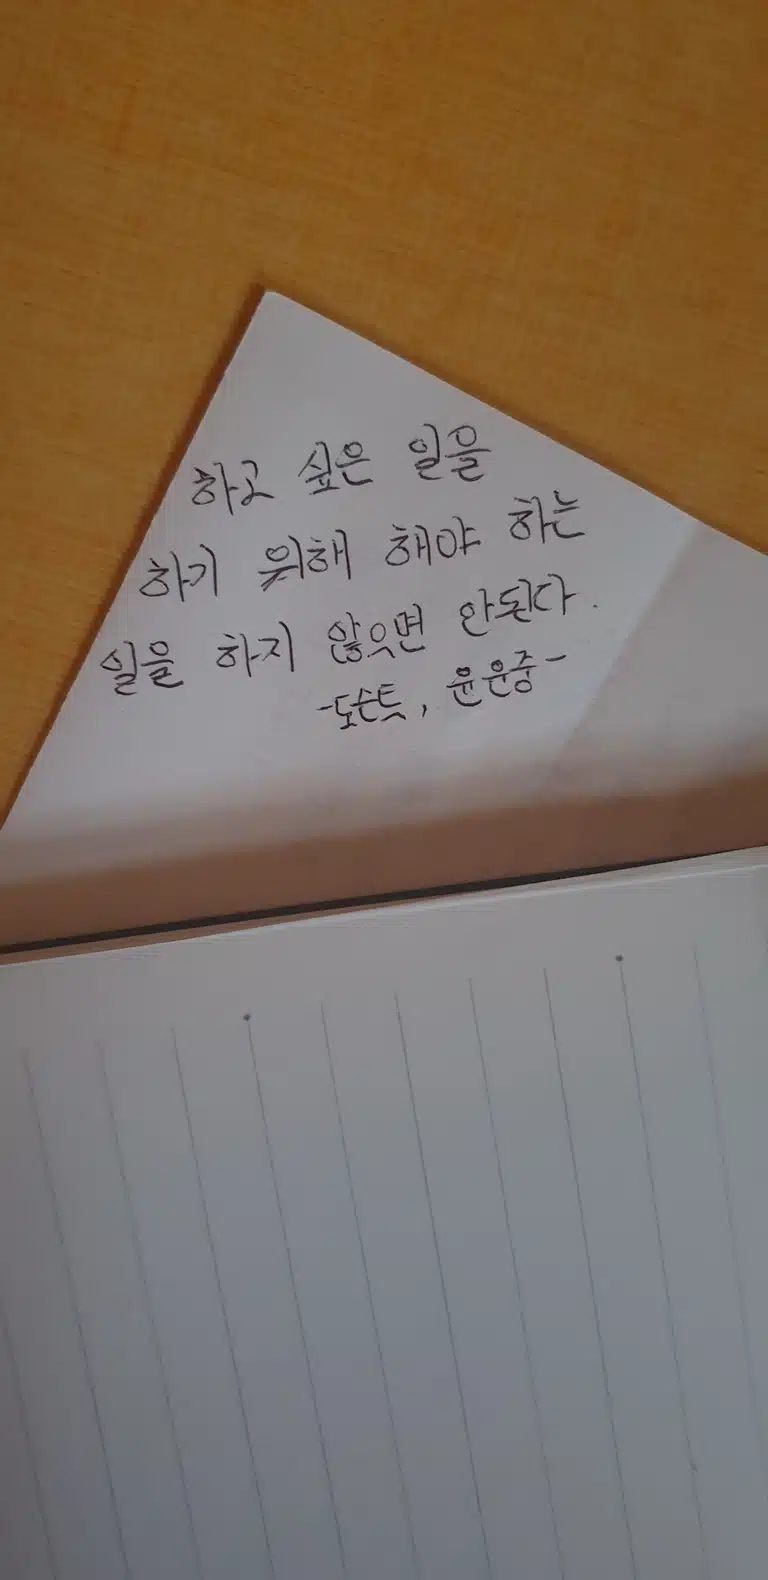 하고 싶은 일을
하기 위해 해야 하는
일을 하지 않으면 안된다.
-도슨트, 윤운중-